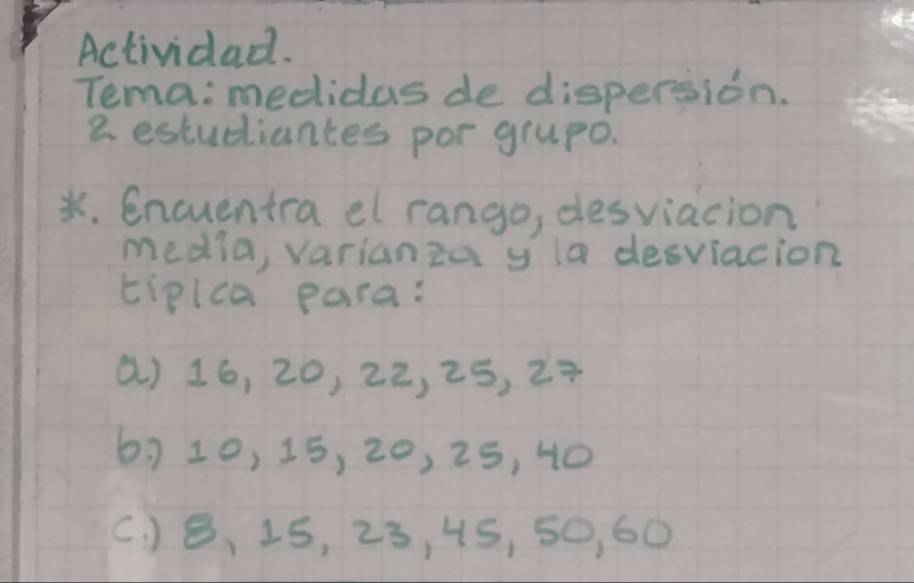 Actividad.
Tema: medidas de dispersión.
2 estudiantes por grupo.
*. Encuentra el rango, desviacion
media, varianza y la desviacion
tipica para:
a) 16, 20, 22, 25, 27
b.) 10, 15, 20, 25, 40
c.) 8, 15, 23, 45, 50, 60